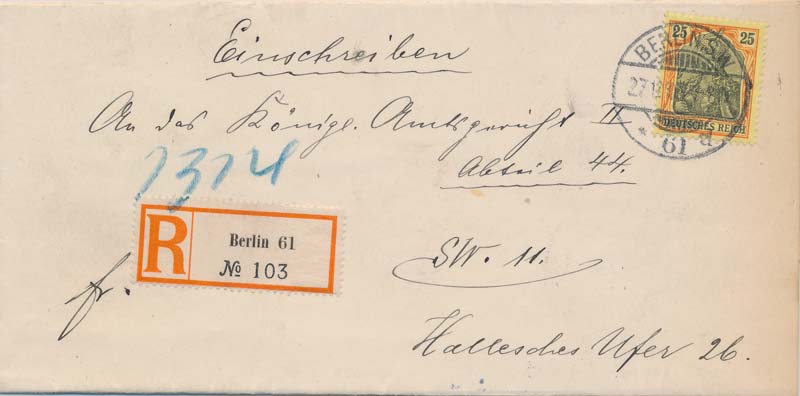 Einschreiben
25 25
DEUTSCHES REICH
BERLIN S.W.
27
* 61 d
An das Königl. Amtsgericht II
Abteil 44.
1314
R
Berlin 61
№ 103
SW. 11.
fr.
Hallesches Ufer 26.